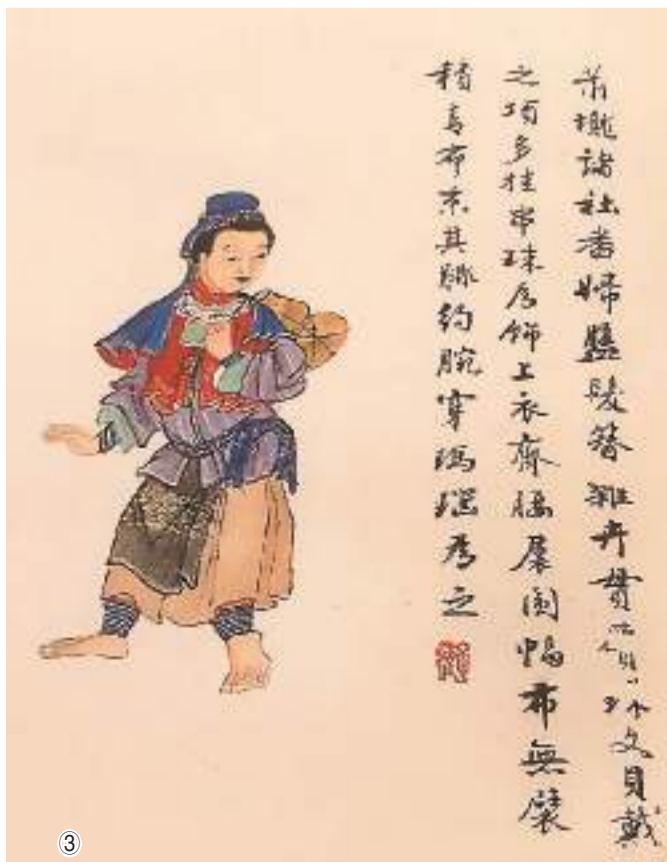 壠諸社番婦盤髮簪雜卉貫文貝戴
之項多挂串珠為飾上衣齊腰圍幅布無襞
積青布束其腳約腕穿瑪瑙為之
③